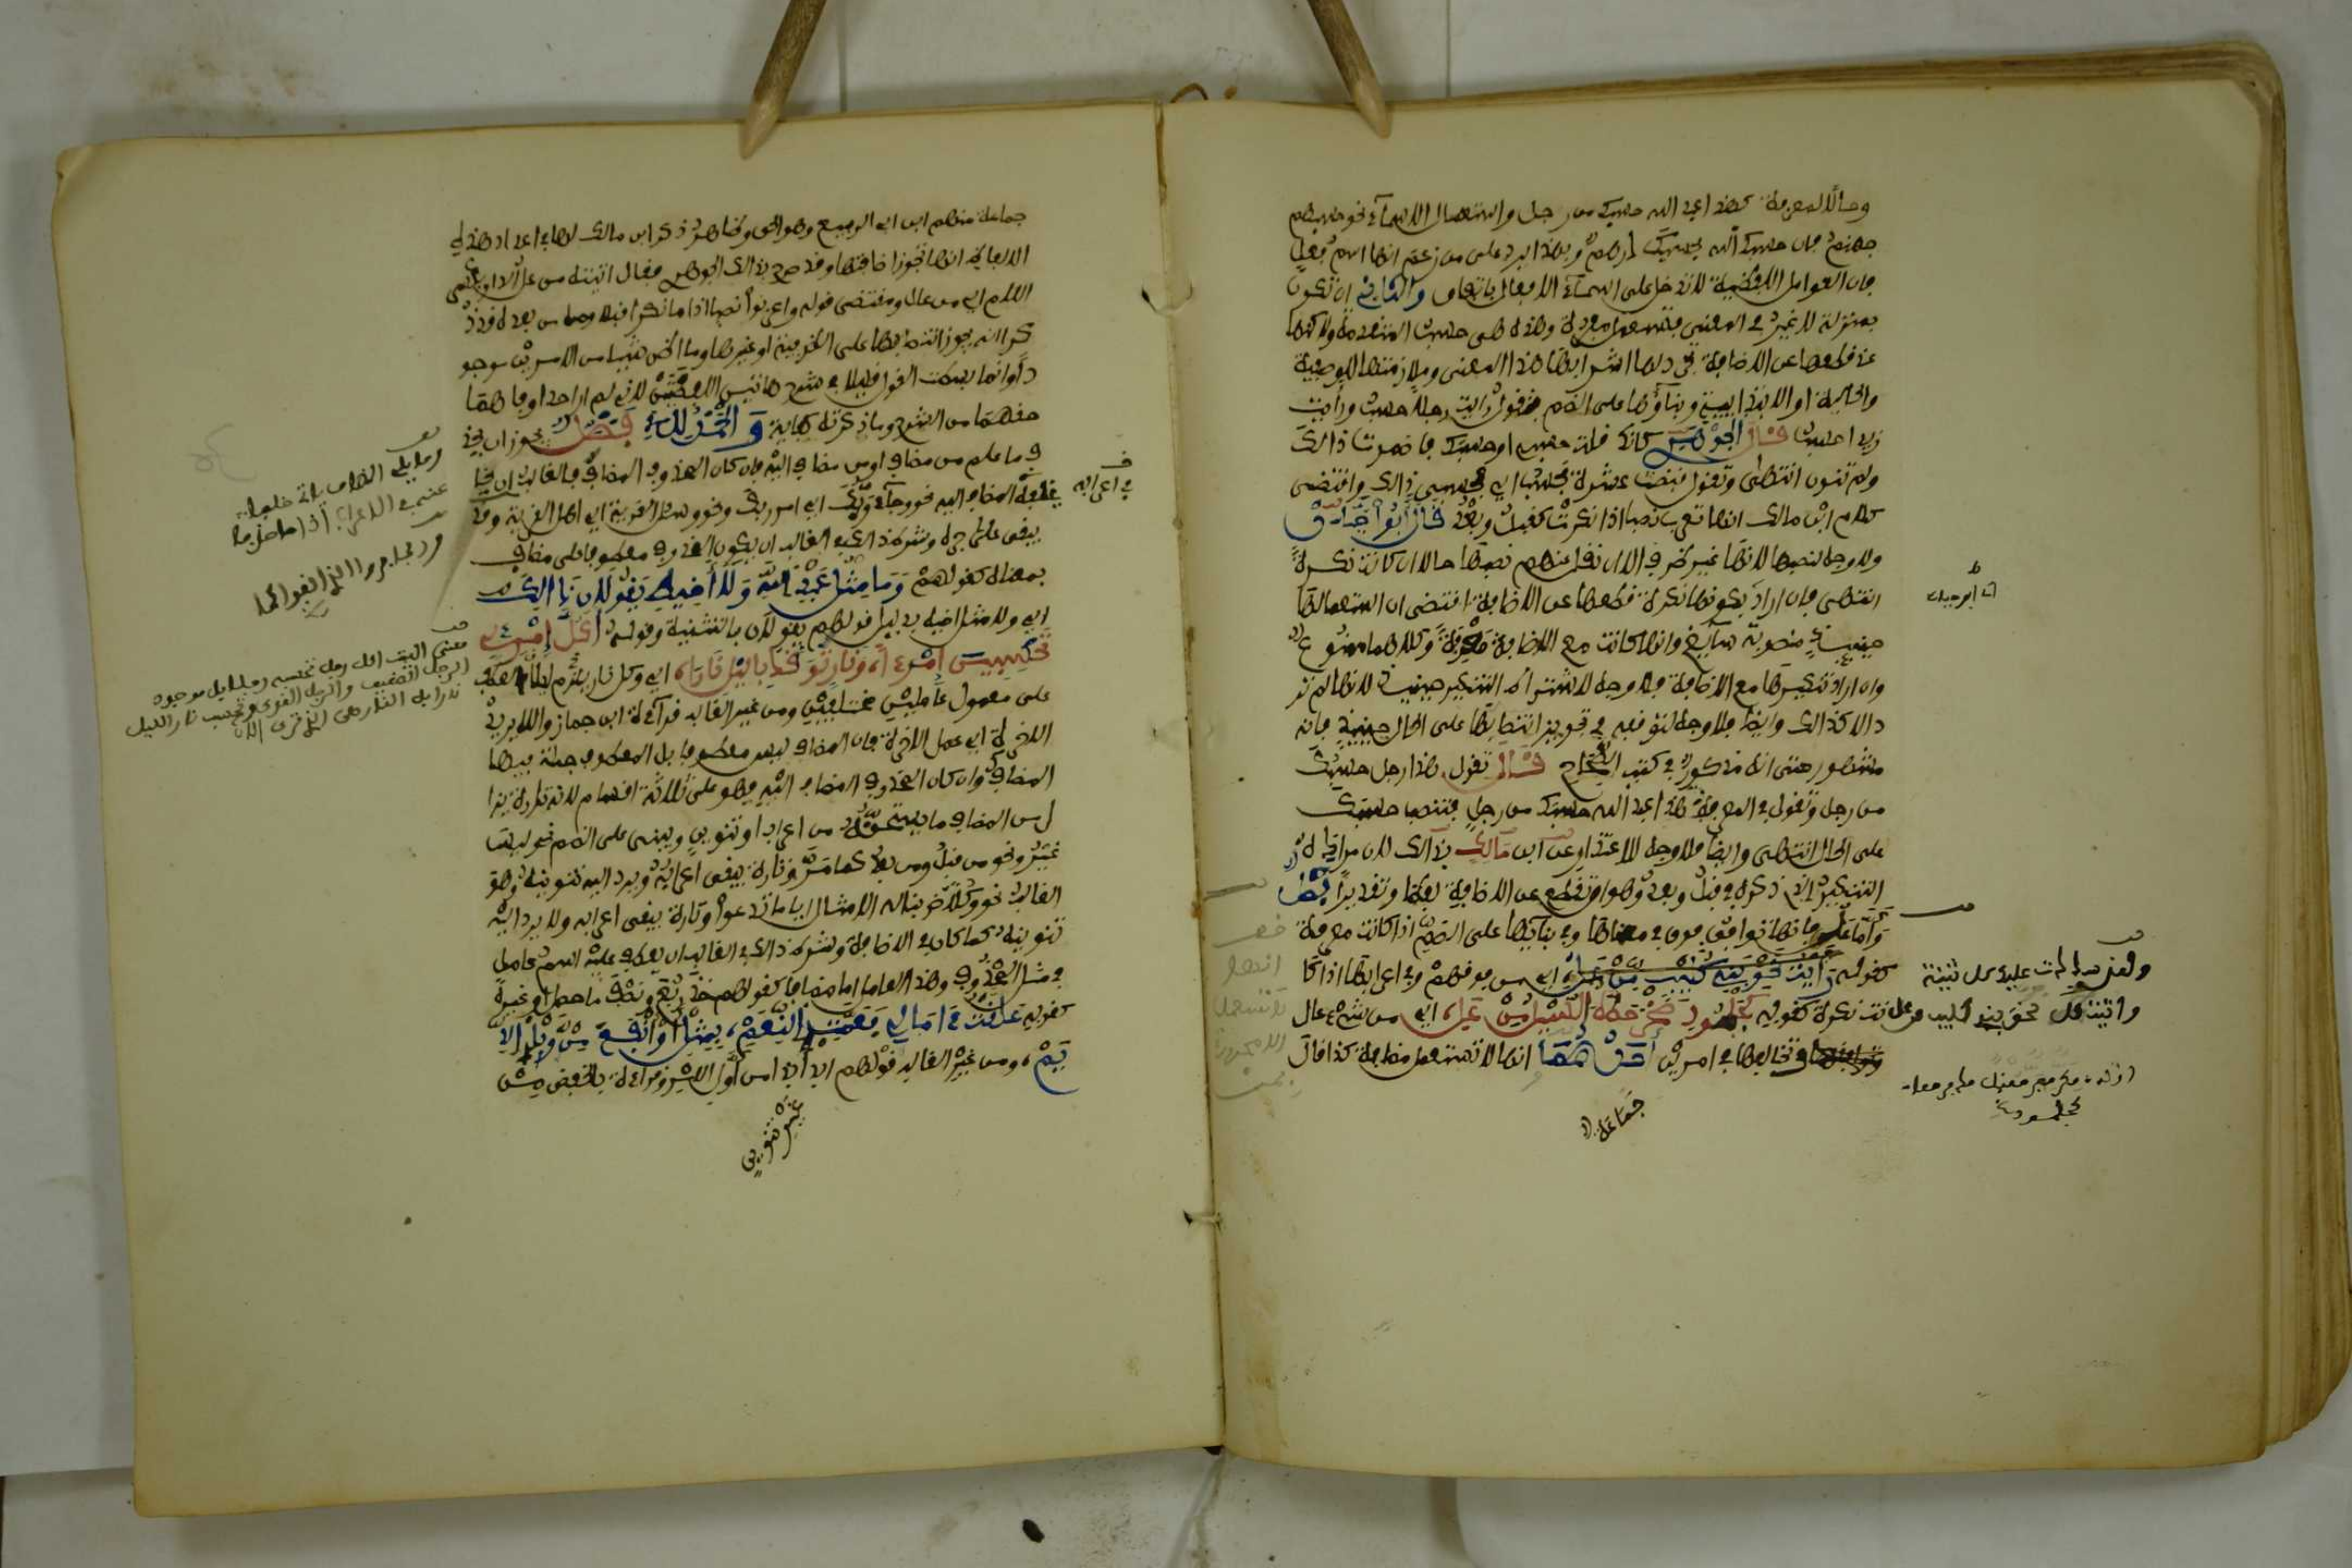 وحالا لمعرفة كهذا عبد الله حسبك من رجل واستعمال الاسماء نحو حسبهم
جهنم فان حسبك الله بحسبك درهم وبهذا يرد على من زعم انها اسم فعل
فان العوامل اللفظية لا تدخل على اسماء الافعال باتفاق والثاني ان تكون
بمنزلة لا غير في المعنى فتستعمل مفردة وهذه هي حسب المتقدمة ولاكنها
عند قطعها عن الاضافة تجدد لها اشرابها هذا المعنى وملازمتها للوصفية
والحالية او الابتدائية وبناؤها على الضم تقول رايت رجلا حسب ورأيت
زيدا حسب قال الجوهري كأنك قلت حسبي او حسبك فاضمرت ذالك
ولم تنون انتهى وتقول قبضت عشرة فحسب اي فحسبي ذالك واقتضى
كلام ابن مالك انها تعرب نصبا اذا نكرت كقبل وبعد قال أبو حيان
ولا وجه لنصبها لانها غير ظرف الا ان نقل عنهم نصبها حالا ان كانت نكرة
انتهى فان اراد بكونها نكرة قطعها عن الاضافة اقتضى ان استعمالها
حينئذ منصوبة سائغ وانها كانت مع الاضافة معرفة وكلاهما ممنوع
وان اراد تنكيرها مع الاضافة فلا وجه لاشتراطه التنكير حينئذ لانها لم تر
د الا كذالك وايضا فلا وجه لتوقفه في تجويز انتصابها على الحال حينئذ فانه
مشهور حتى انه مذكور في كتب الصحاح قال تقول هذا رجل حسبك
من رجل وتقول في المعرفة هذا عبد الله حسبك من رجل فتنصب حسبك
على الحال انتهى وايضا فلا وجه للاعتذار عن ابن مالك بذالك لان مراده
التنكير الذي ذكره في قبل وبعد وهو ان تقطع عن الاضافة لفظا وتقديرا
وأما عل فانها توافق فوق في معناها وفي بنائها على الضم اذا كانت معرفة
كقوله أتيت فوق بني كليب من عل اي من فوقهم وفي اعرابها اذا كا
نت نكرة كقوله كجلمود صخر حطه السيل من عل اي من شيء عال
وتخالفها في امرين أحدهما انها لا تستعمل مضافة كذا قال
جماعة
ولقد سددت عليك كل ثنية
واتيت فوق بني كليب من عل
جماعة منهم ابن ابي الربيع وهو الحق وظاهر ذكر ابن مالك لها في اعداد هذه
الالفاظ انها تجوز اضافتها وقد صرح بذالك الجوهري فقال اتيته من عل الدار بكسر
اللام اي من عال ومقتضى قوله واعربوا نصبا اذا ما نكرا قبلا وما من بعده قد ذ
كرا انه يجوز انتصابها على الظرفية او غيرها وما اظن شيئا من الامرين موجو
دا وانما بسطت القول قليلا في شرح هاتين الكلمتين لاني لم ار احدا وفاهما
حقهما من الشرح وفيما ذكرته كفاية والحمد لله فصل يجوز ان يحذ
ف ما علم من مضاف او من مضاف اليه فان كان المحذوف المضاف فالغالب ان يخلفه
في اعرابه المضاف اليه نحو وجاء ربك اي امر ربك ونحو وسئل القرية اي اهل القرية وقد
يبقى على جره وشرط ذالك في الغالب ان يكون المحذوف معطوفا على مضاف
بمعناه كقولهم وما مثل عبد الله ولا أخيه يقولان ذالك
اي ولا مثل اخيه بدليل قولهم يقولان بالتثنية وقوله أكل امرئ
تحسبين امرءا، ونار توقد بالليل نارا، اي وكل نار ليلا يلزم العطف
على معمول عاملين مختلفين ومن غير الغالب قراءة ابن جماز والله يريد
الاخرة اي عمل الاخرة فان المضاف ليس معطوفا بل المعطوف جملة فيها
المضاف وان كان المحذوف المضاف اليه فهو على ثلاثة اقسام لانه تارة يزا
ل من المضاف ما يستحقه من اعراب وتنوين ويبنى على الضم نحو ليس
غير ونحو من قبل ومن بعد كما مر وتارة يبقى اعرابه ويرد اليه تنوينه وهو
الغالب نحو وكلا ضربنا له الامثال ايا ما تدعوا وتارة يبقى اعرابه ولا يرد اليه
تنوينه كما كان في الاضافة وشرط ذالك في الغالب ان يعطف عليه اسم عامل
في مثل المحذوف وهذا العامل اما مضاف كقولهم خذ ربع ونصف ما حصل او غيره
كقوله علقت امالي فعمت النعم، بمثل أو أنفع من وبل الد
يم، ومن غير الغالب قولهم ابدأ بذا من أول بالخفض من
غير تنوين
وما يلي المضاف ياتي خلفا
عنه في الاعراب اذا ما حذفا
وربما جروا الذي ابقوا كما